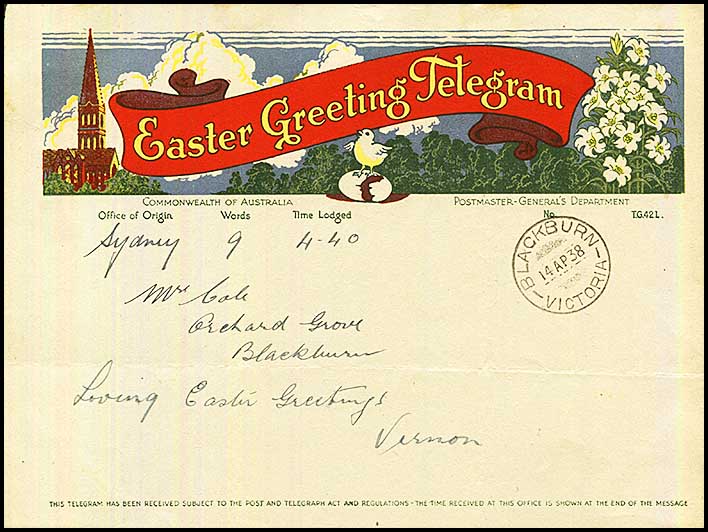 Easter Greeting Telegram
COMMONWEALTH OF AUSTRALIA POSTMASTER-GENERAL'S DEPARTMENT
Office of Origin Words Time Lodged No. T.G.42L.
Sydney 9 4-40
BLACKBURN
14 AP 38
VICTORIA
Mrs Cole
Orchard Grove
Blackburn
Loving Easter Greetings
Vernon
THIS TELEGRAM HAS BEEN RECEIVED SUBJECT TO THE POST AND TELEGRAPH ACT AND REGULATIONS - THE TIME RECEIVED AT THIS OFFICE IS SHOWN AT THE END OF THE MESSAGE